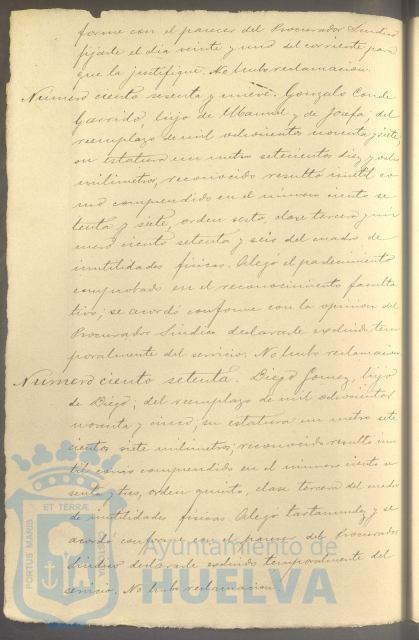 forme con el parecer del Procurador Sindico
fijarle el dia veinte y uno del corriente para
que la justifique. No hubo reclamacion
Número ciento sesenta y nueve. Gonzalo Conde
Garrido, hijo de Manuel y de Josefa; del
reemplazo de mil ochocientos noventa y siete,
su estatura un metro setecientos diez y ocho
milimetros, reconocido resultó inutil co
mo comprendido en el número ciento se
tenta y siete, orden sesto, clase tercera y nu
mero ciento setenta y seis del cuadro de
inutilidades fisicas. Alegó el padecimiento
comprobado en el reconocimiento faculta
tivo, se acordó conforme con la opinion del
Procurador Sindico declararle excluido tem
poralmente del servicio. No hubo reclamacion
Número ciento setenta. Diego Gomez, hijo
de Diego; del reemplazo de mil ochocientos
noventa y cinco; su estatura un metro sete
cientos siete milimetros; reconocido resultó inu
til como comprendido en el número ciento se
senta y tres, orden quinto, clase tercera del cuadro
de inutilidades fisicas. Alegó tartamudez y se
acordó conforme con el parecer del Procurador
Sindico declararle excluido temporalmente del
servicio. No hubo reclamacion.
PORTUS MARIS ET TERRÆ CUSTODIA
Ayuntamiento de
HUELVA